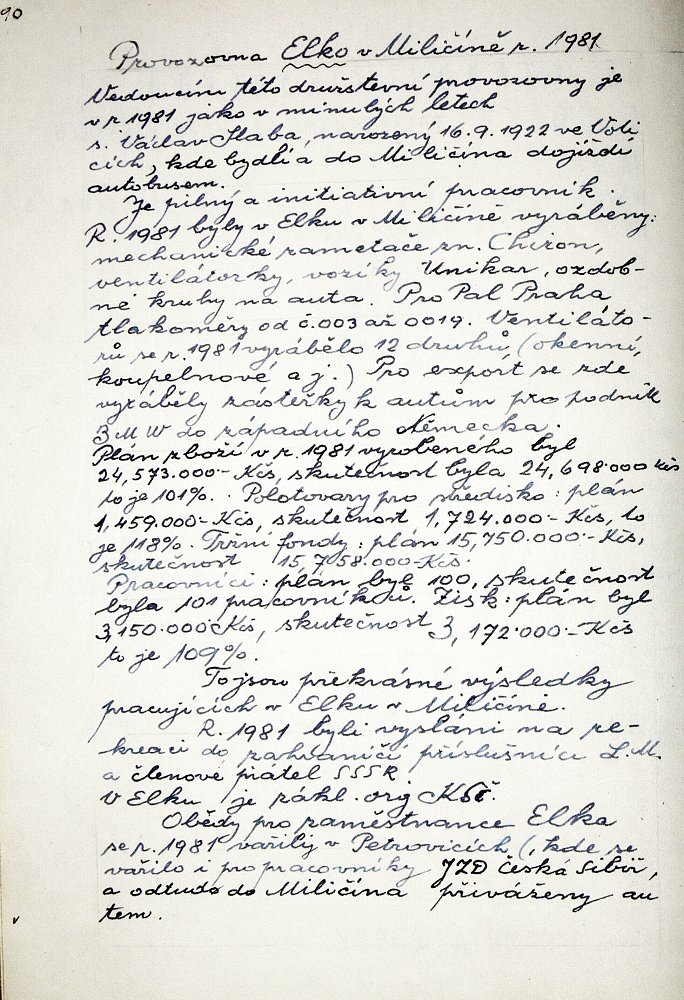 90
Provozovna Elko v Miličíně r. 1981
Vedoucím této družstevní provozovny je
v r 1981 jako v minulých letech
s. Václav Slaba, narozený 16.9.1922 ve Voti
cích, kde bydlí a do Miličína dojíždí
autobusem.
Je pilný a initiativní pracovník.
R. 1981 byly v Elku v Miličíně vyráběny:
mechanické zametače zn. Chiron,
ventilátorky, vozíky Unikar, ozdob-
né kruhy na auta. Pro Pal Praha
tlakoměry od č.003 až 0019. Ventiláto-
rů se r. 1981 vyrábělo 12 druhů (okenní,
koupelnové a j.) Pro export se zde
vyráběly zástěrky k autům pro podnik
BMW do západního Německa.
Plán zboží v r. 1981 vyrobeného byl
24,573.000.- Kčs, skutečnost byla 24,698.000 kčs
to je 101%. Polotovary pro středisko: plán
1,459.000.- Kčs, skutečnost 1,724.000.- Kčs, to
je 118%. Tržní fondy: plán 15,750.000.- Kčs,
skutečnost 15,758.000 Kčs.
Pracovníci: plán byl 100, skutečnost
byla 101 pracovníků. Zisk: plán byl
3,150.000 Kčs, skutečnost 3,172.000.- Kčs
to je 109%.
To jsou překrásné výsledky
pracujících v Elku v Miličíně.
R. 1981 byli vysláni na re-
kreaci do zahraničí příslušníci L.M.
a členové přátel SSSR
V Elku je zákl. org KSČ.
Obědy pro zaměstnance Elka
se r. 1981 vařily v Petrovicích (, kde se
vařilo i pro pracovníky JZD Česká Sibiř,
a odtud do Miličína přiváženy au
tem.